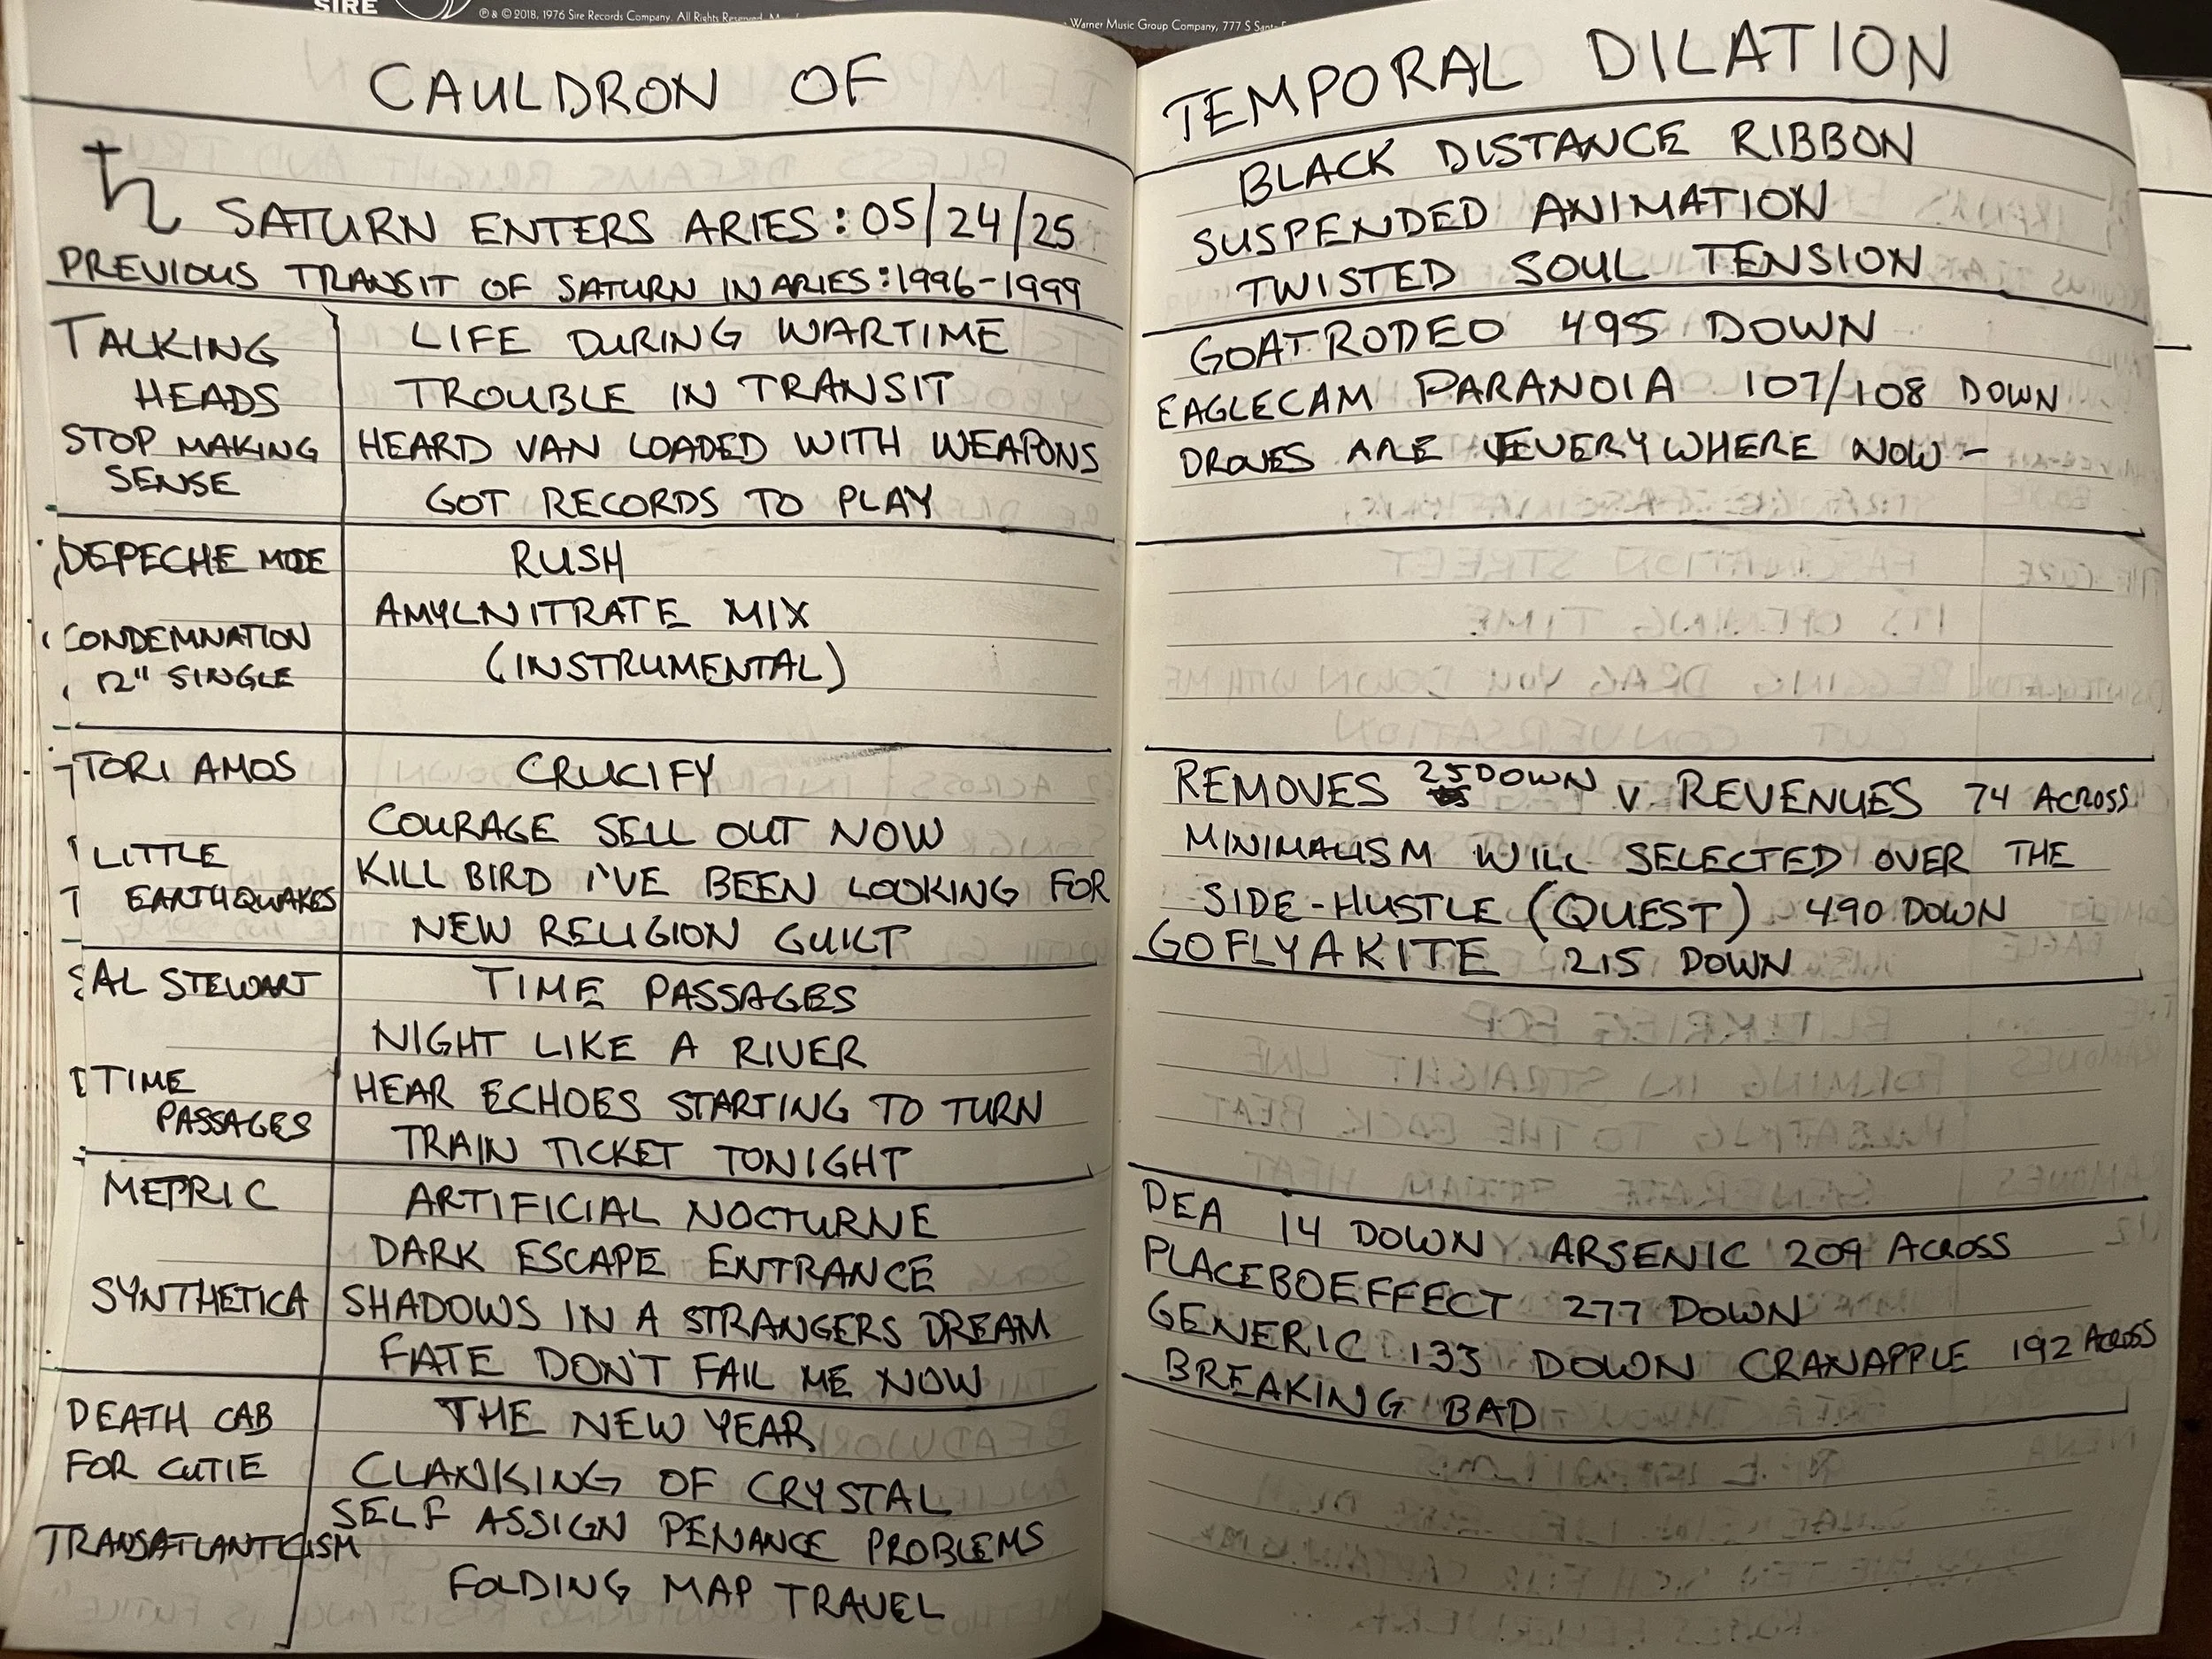 SIRE
℗ & © 2018, 1976 Sire Records Company. All Rights Reserved.
Warner Music Group Company, 777 S
CAULDRON OF
♄ SATURN ENTERS ARIES: 05/24/25
PREVIOUS TRANSIT OF SATURN IN ARIES: 1996-1999
TALKING
HEADS
STOP MAKING
SENSE
LIFE DURING WARTIME
TROUBLE IN TRANSIT
HEARD VAN LOADED WITH WEAPONS
GOT RECORDS TO PLAY
DEPECHE MODE
CONDEMNATION
12" SINGLE
RUSH
AMYLNITRATE MIX
(INSTRUMENTAL)
TORI AMOS
LITTLE
EARTHQUAKES
CRUCIFY
COURAGE SELL OUT NOW
KILL BIRD I'VE BEEN LOOKING FOR
NEW RELIGION GUILT
AL STEWART
TIME
PASSAGES
TIME PASSAGES
NIGHT LIKE A RIVER
HEAR ECHOES STARTING TO TURN
TRAIN TICKET TONIGHT
METRIC
SYNTHETICA
ARTIFICIAL NOCTURNE
DARK ESCAPE ENTRANCE
SHADOWS IN A STRANGERS DREAM
FATE DON'T FAIL ME NOW
DEATH CAB
FOR CUTIE
TRANSATLANTICISM
THE NEW YEAR
CLANKING OF CRYSTAL
SELF ASSIGN PENANCE PROBLEMS
FOLDING MAP TRAVEL
TEMPORAL DILATION
BLACK DISTANCE RIBBON
SUSPENDED ANIMATION
TWISTED SOUL TENSION
GOATRODEO 495 DOWN
EAGLECAM PARANOIA 107/108 DOWN
DRONES ARE EVERYWHERE NOW -
REMOVES 25 DOWN V REVENUES 74 ACROSS
MINIMALISM WILL SELECTED OVER THE
SIDE-HUSTLE (QUEST) 490 DOWN
GOFLYAKITE 215 DOWN
DEA 14 DOWN ARSENIC 209 ACROSS
PLACEBOEFFECT 277 DOWN
GENERIC 133 DOWN CRANAPPLE 192 ACROSS
BREAKING BAD